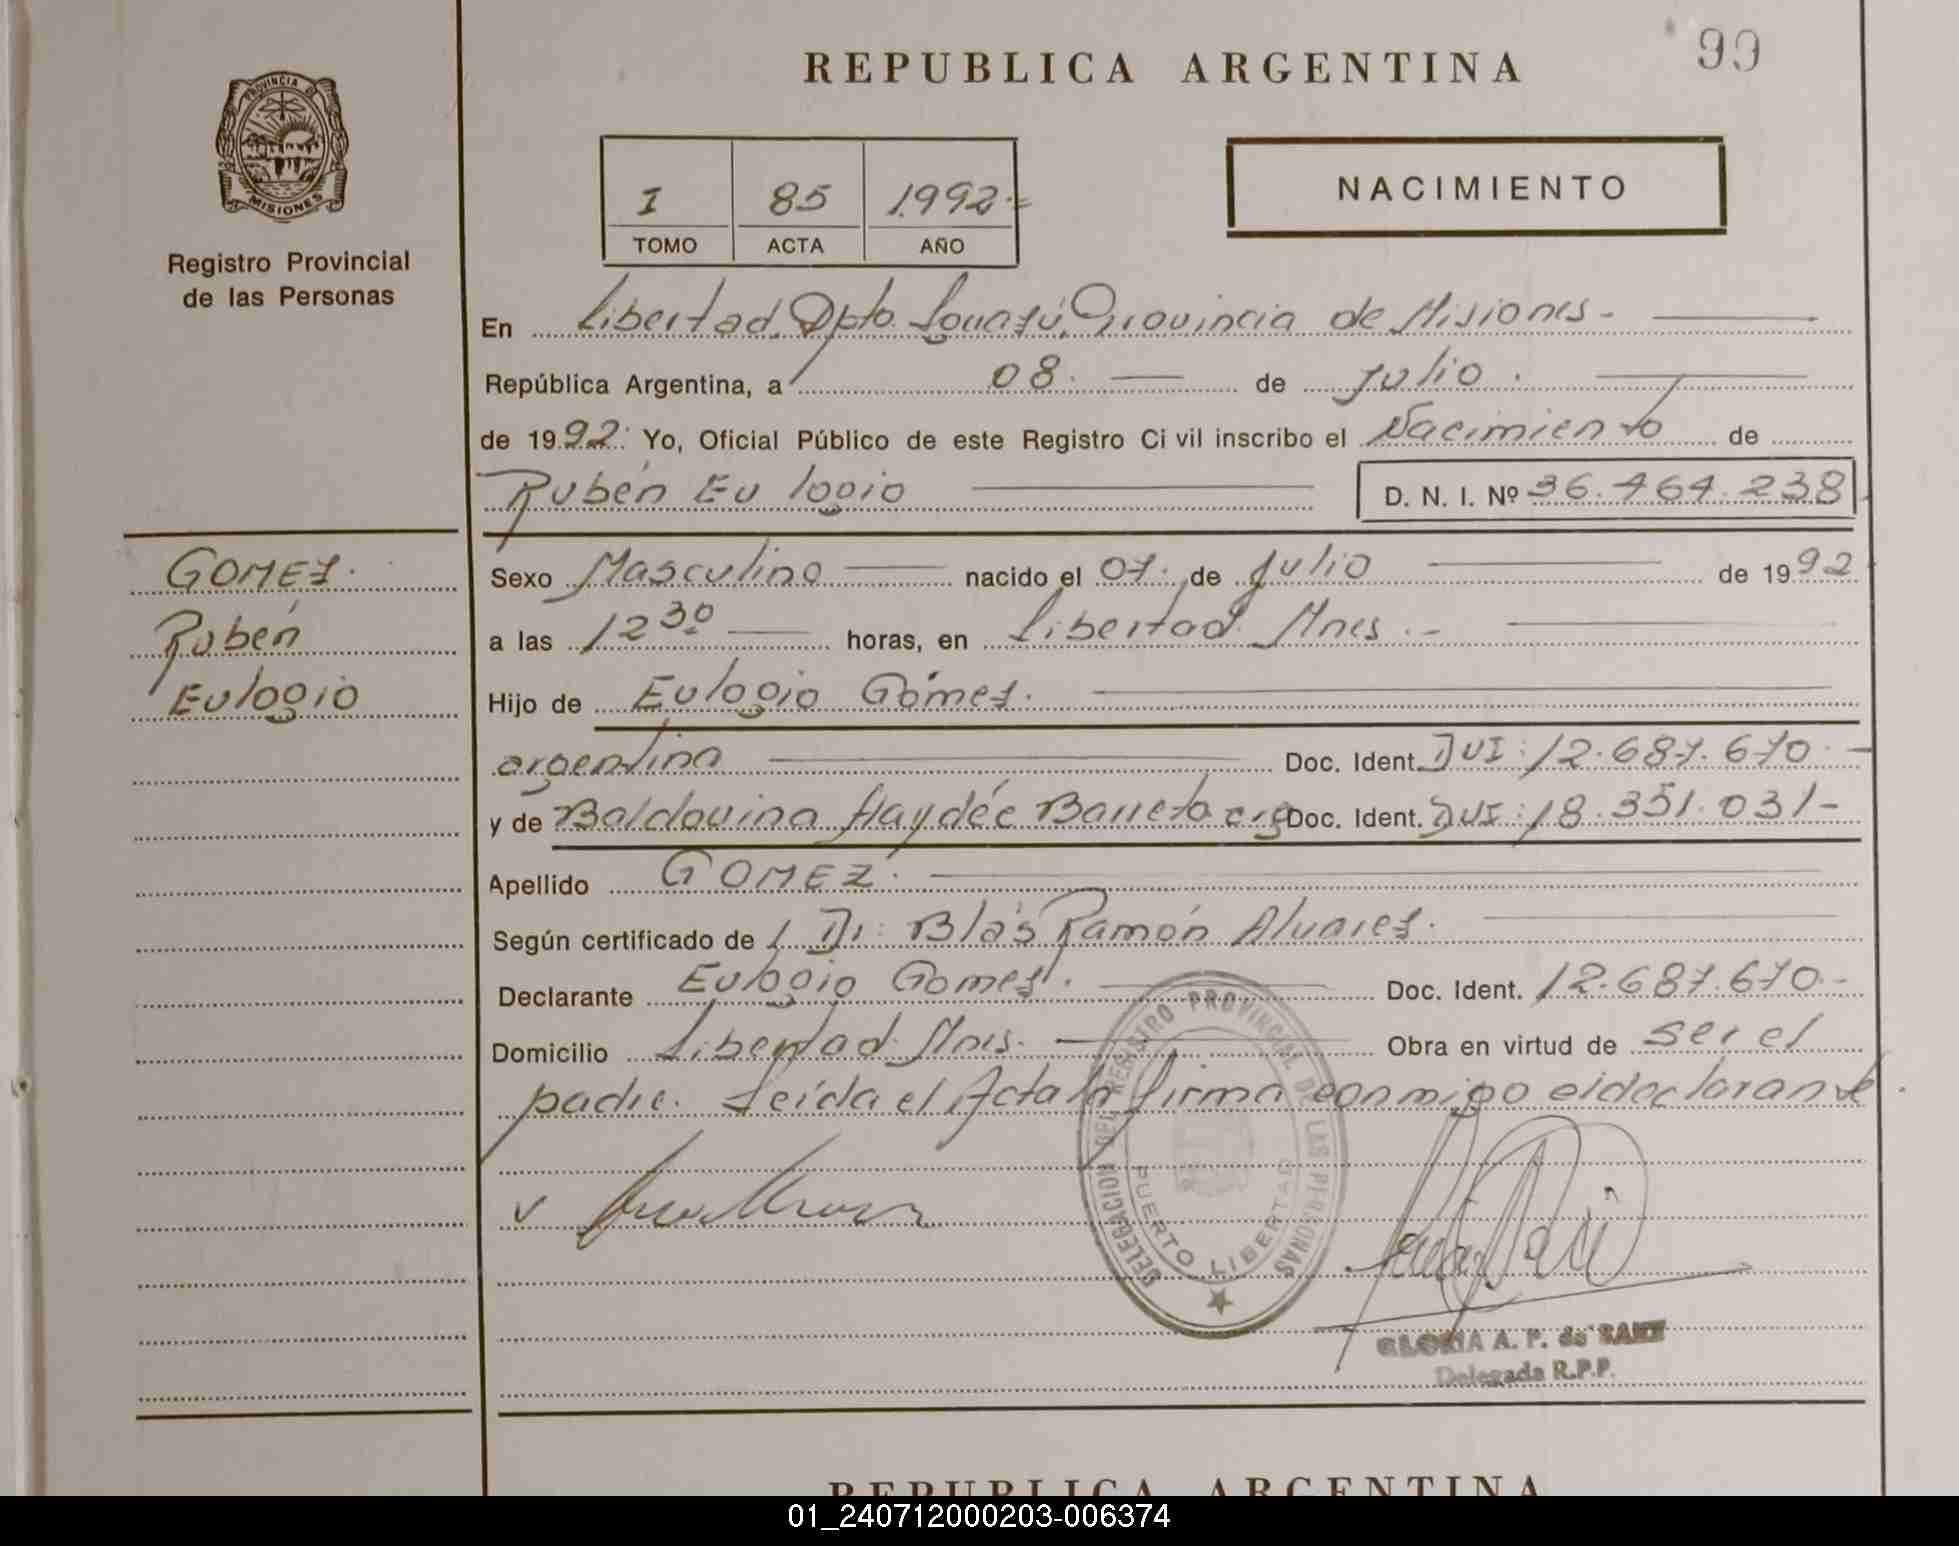 99
REPUBLICA ARGENTINA
PROVINCIA DE
MISIONES
Registro Provincial
de las Personas
I 85 1992.=
TOMO ACTA AÑO
NACIMIENTO
En Libertad, Dpto. Iguazú, Provincia de Misiones.-
República Argentina, a 08. de Julio.
de 1992. Yo, Oficial Público de este Registro Civil inscribo el Nacimiento de
Rubén Eulogio D. N. I. Nº 36.464.238
GOMEZ.
Rubén
Eulogio
Sexo Masculino nacido el 07. de Julio de 1992
a las 12 30 horas, en Libertad. Mnes.-
Hijo de Eulogio Gómez.
argentina Doc. Ident. DUI: 12.687.670.-
y de Baldovina Haydée Barreto arg Doc. Ident. DUI: 18.351.031-
Apellido GOMEZ.
Según certificado de Dr. Blás Ramón Alvarez.
Declarante Eulogio Gomez. Doc. Ident. 12.687.670.-
Domicilio Libertad. Mnes. Obra en virtud de ser el
padre. Leída el Acta la firma conmigo el declarante.
DELEGACION DEL REGISTRO PROVINCIAL DE LAS PERSONAS
PUERTO LIBERTAD
GLORIA A. P. de
Delegada R.P.P.
REPUBLICA ARGENTINA
01_240712000203-006374